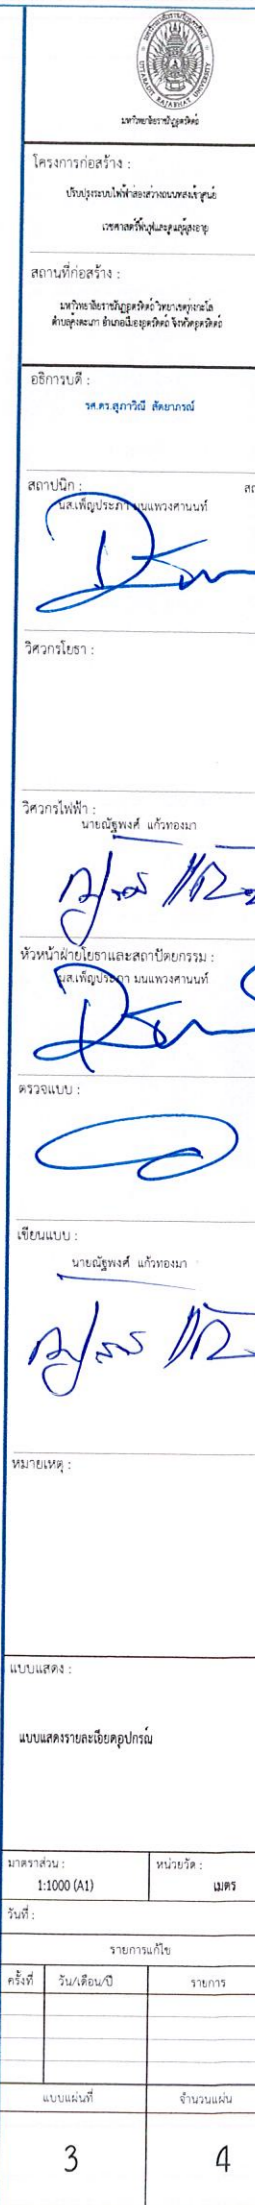 UTTARADIT RAJABHAT UNIVERSITY
มหาวิทยาลัยราชภัฏอุตรดิตถ์
โครงการก่อสร้าง :
ปรับปรุงระบบไฟฟ้าส่องสว่างถนนทางเข้าศูนย์
เวชศาสตร์ฟื้นฟูและดูแลผู้สูงอายุ
สถานที่ก่อสร้าง :
มหาวิทยาลัยราชภัฏอุตรดิตถ์ วิทยาเขตทุ่งกะโล่
ตำบลคุ้งตะเภา อำเภอเมืองอุตรดิตถ์ จังหวัดอุตรดิตถ์
อธิการบดี :
รศ.ดร.สุภาวิณี สัตยาภรณ์
สถาปนิก :
นส.เพ็ญประภา มนแพวงศานนท์
วิศวกรโยธา :
วิศวกรไฟฟ้า :
นายณัฐพงศ์ แก้วทองมา
หัวหน้าฝ่ายโยธาและสถาปัตยกรรม :
นส.เพ็ญประภา มนแพวงศานนท์
ตรวจแบบ :
เขียนแบบ :
นายณัฐพงศ์ แก้วทองมา
หมายเหตุ :
แบบแสดง :
แบบแสดงรายละเอียดอุปกรณ์
มาตราส่วน : หน่วยวัด :
1:1000 (A1) เมตร
วันที่ :
รายการแก้ไข
ครั้งที่ วัน/เดือน/ปี รายการ
แบบแผ่นที่ จำนวนแผ่น
3 4